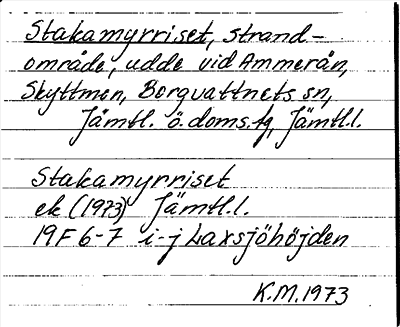 Stakamyrriset, strand-
område, udde vid Ammerån,
Skyttmon, Borgvattnets sn,
Jämtl. ö. doms.tg, Jämtl.l.
Stakamyrriset
ek (1973) Jämtl.l.
19F 6-7 i-j Laxsjöhöjden
K.M. 1973